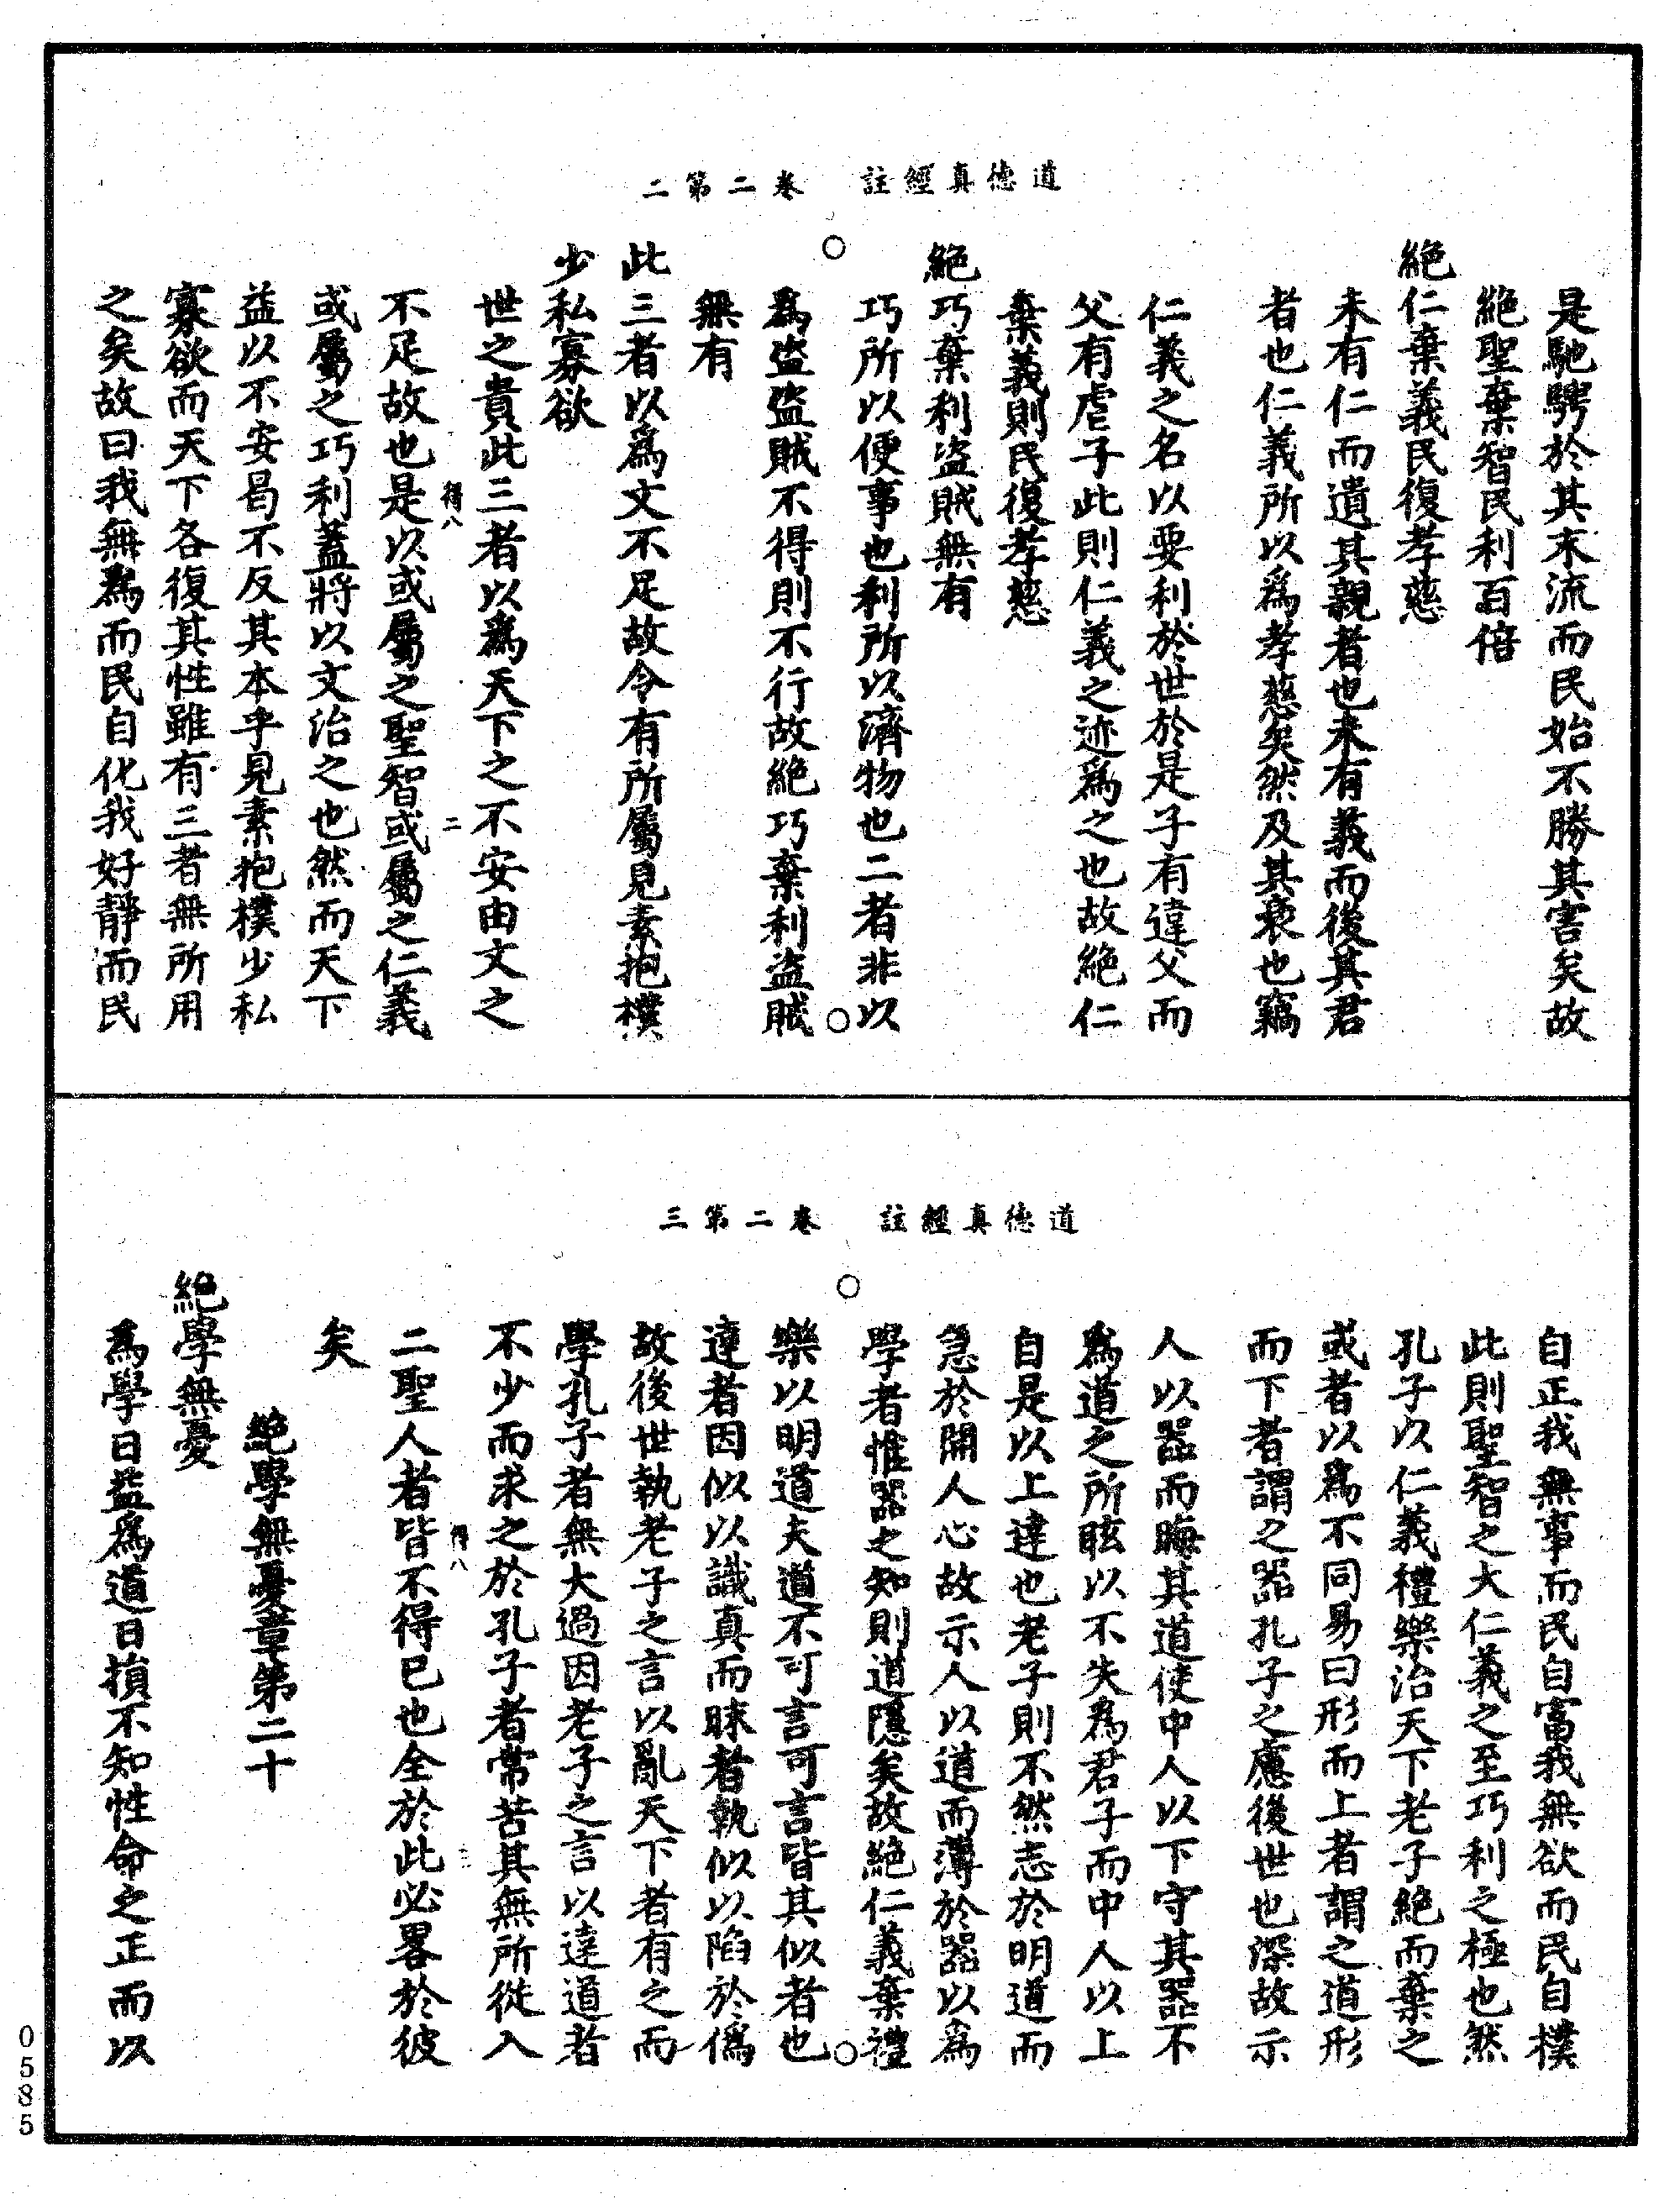 道德真經註　卷二第二
是馳騁於其末流而民始不勝其害矣故
絕聖棄智民利百倍
絕仁棄義民復孝慈
未有仁而遺其親者也未有義而後其君
者也仁義所以為孝慈矣然及其衰也竊
仁義之名以要利於世於是子有違父而
父有虐子此則仁義之迹為之也故絕仁
棄義則民復孝慈
絕巧棄利盜賊無有
巧所以便事也利所以濟物也二者非以
為盜盜賊不得則不行故絕巧棄利盜賊
無有
此三者以為文不足故令有所屬見素抱樸
少私寡欲
世之貴此三者以為天下之不安由文之
得八　二
不足故也是以或屬之聖智或屬之仁義
或屬之巧利蓋將以文治之也然而天下
益以不安曷不反其本乎見素抱樸少私
寡欲而天下各復其性雖有三者無所用
之矣故曰我無為而民自化我好靜而民
道德真經註　卷二第三
自正我無事而民自富我無欲而民自樸
此則聖智之大仁義之至巧利之極也然
孔子以仁義禮樂治天下老子絕而棄之
或者以為不同易曰形而上者謂之道形
而下者謂之器孔子之慮後世也深故示
人以器而晦其道使中人以下守其器不
為道之所眩以不失為君子而中人以上
自是以上達也老子則不然志於明道而
急於開人心故示人以道而薄於器以為
學者惟器之知則道隱矣故絕仁義棄禮
樂以明道夫道不可言可言皆其似者也
達者因似以識真而昧者執似以陷於偽
故後世執老子之言以亂天下者有之而
學孔子者無大過因老子之言以達道者
不少而求之於孔子者常苦其無所從入
得八　三
二聖人者皆不得已也全於此必畧於彼
矣
絕學無憂章第二十
絕學無憂
為學日益為道日損不知性命之正而以
0585